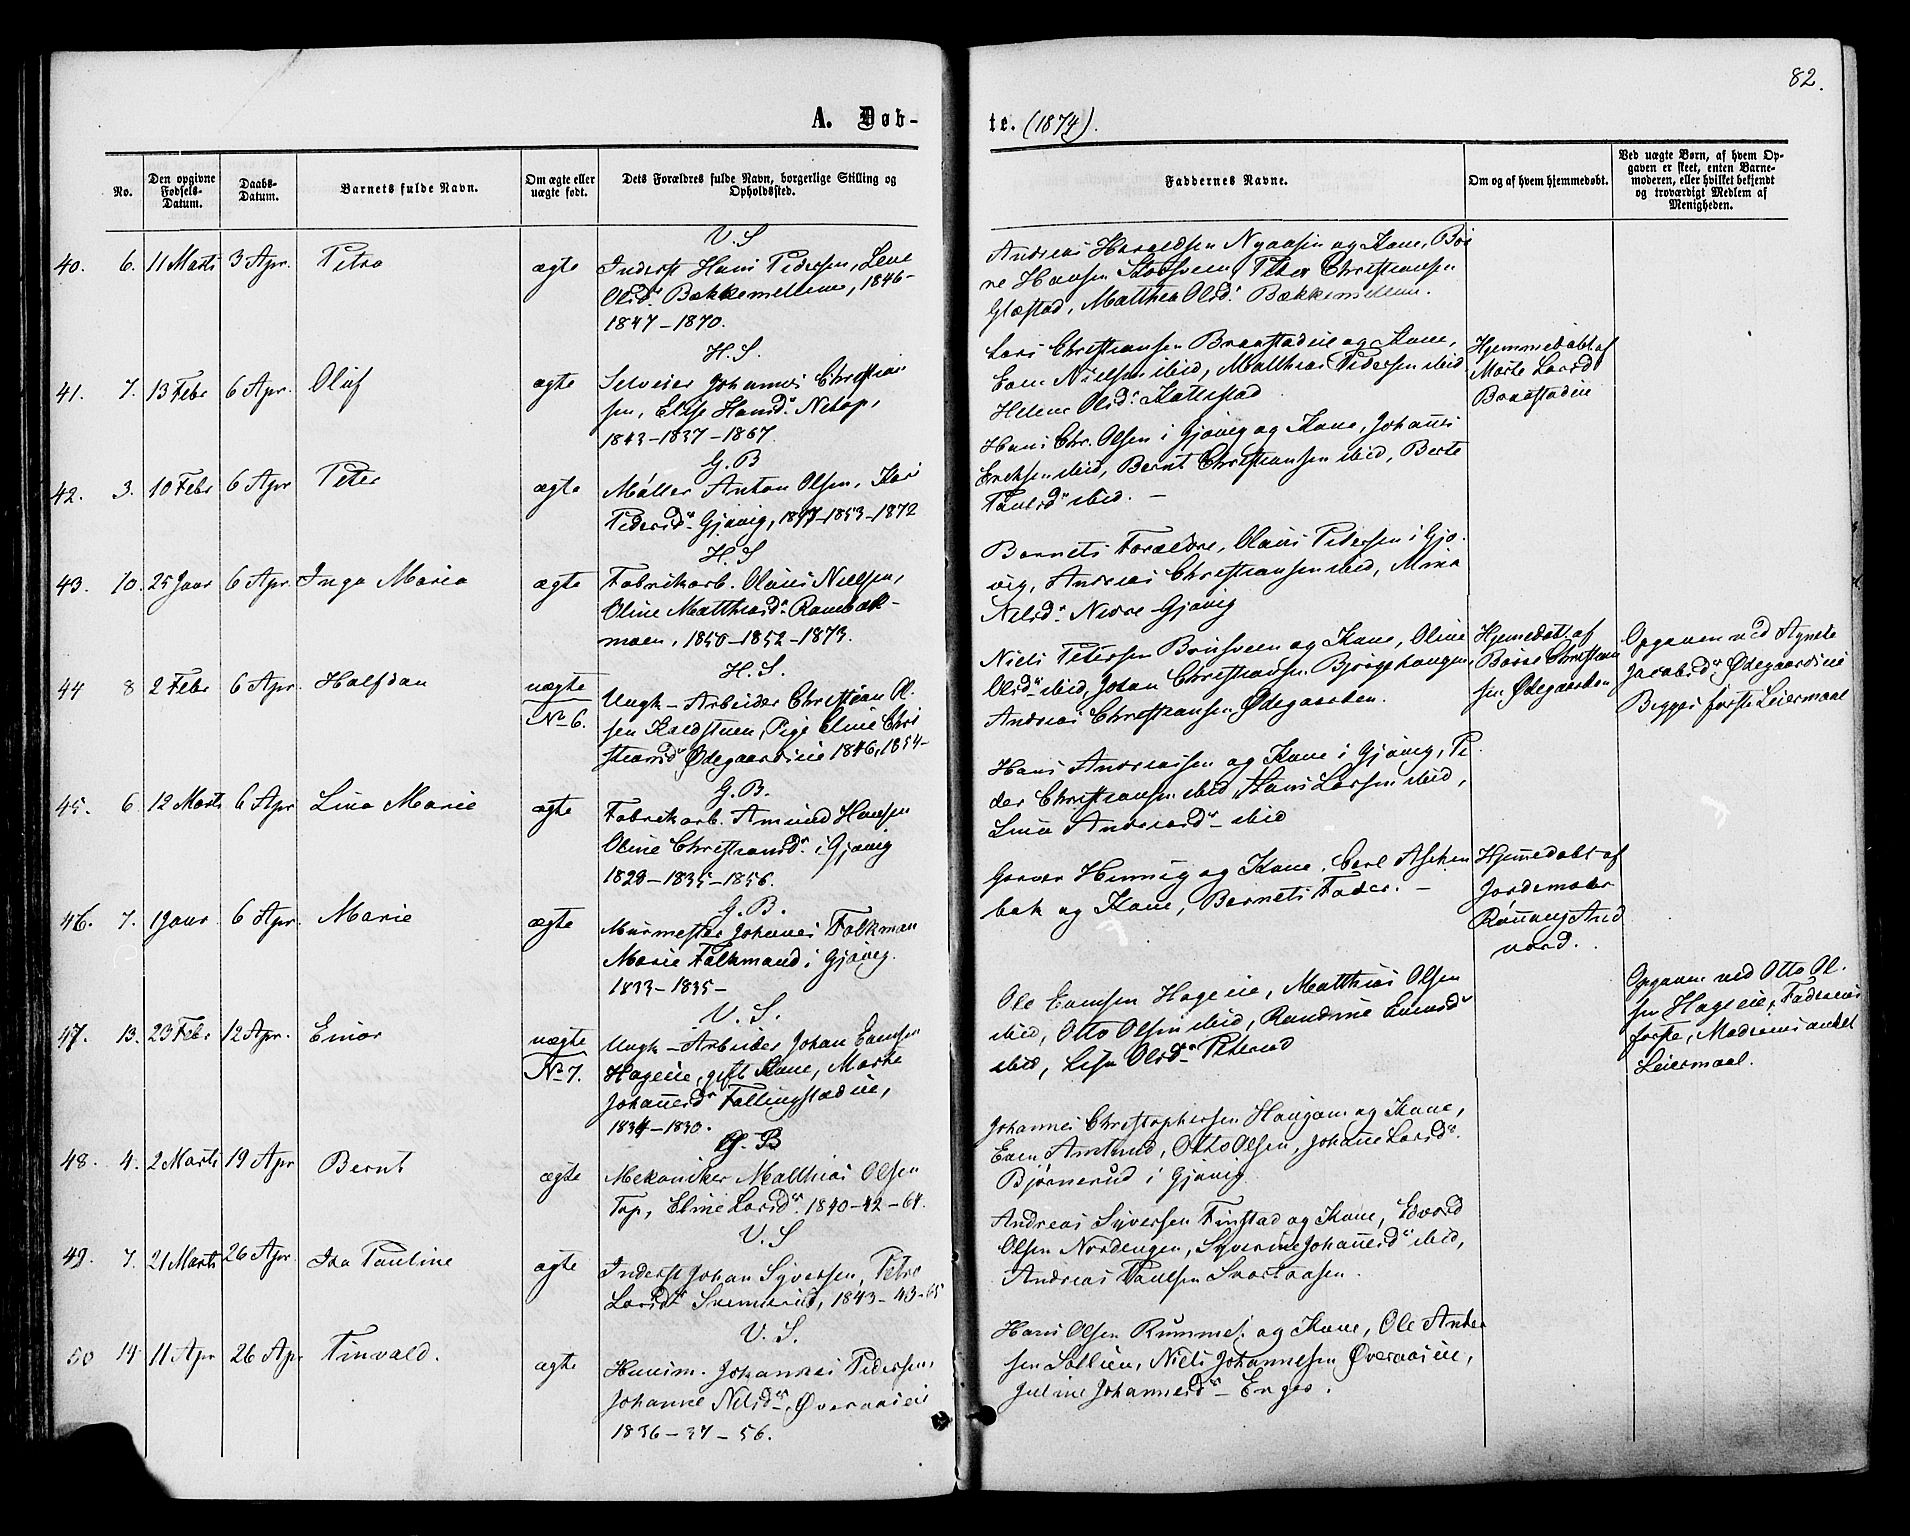 82.
A. Døb-
te. (1874).
No.
Den opgivne
Fødsels-
Datum.
Daabs-
Datum.
Barnets fulde Navn.
Om ægte eller
uægte født.
Dets Forældres fulde Navn, borgerlige Stilling og
Opholdssted.
Faddernes Navne.
Om og af hvem hjemmedøbt.
Ved uægte Børn, af hvem Op-
gaven er skeet, enten Barne-
moderen, eller hvilket bekjendt
og troværdigt Medlem af
Menigheden.
V. S
40. 6. 11 Marts 3 Apr. Petra ægte Inderst Hans Pedersen, Lene
Olsd. Bækkemellem, 1846-
1847-1870.
Andreas Haraldsen Nyaasen og Kone, Bør
re Hansen Storsveen, Peter Christiansen
Glæstad, Matthea Olsd. Bækkemellem.
H. S.
41. 7. 13 Febr 6 Apr. Oluf ægte Selveier Johannes Christian
sen, Else Hansd. Netop,
1843-1837-1867.
Lars Christiansen Braastadeie og Kone,
Even Nielsen ibid, Matthias Pedersen ibid
Helene Olsd.
Hjemmedøbt af
Marte Larsd
Braastadeie
G. B
42. 3. 10 Febr 6 Apr Peter ægte Møller Anton Olsen, Kari
Pedersd. Gjøvig, 1847-1853-1872
Hans Chr. Olsen i Gjøvig og Kone, Johannes
Ericksen ibid, Bernt Christiansen ibid, Berte
Paulsd. ibid. -
H. S
43. 10. 25 Jaur 6 Apr. Inga Maria ægte Fabrikarb. Olaus Nielsen,
Oline Matthiasd. Rambæk-
moen, 1850-1852-1873.
Barnets Forældre, Olaus Pedersen i Gjø-
vig, Andreas Christiansen ibid, Mina
Nilsd. Nedre Gjøvig
H. S.
44 8 2 Febr 6 Apr. Halfdan uægte
No 6.
Ungk-Arbeider Christian Ol-
sen Kaldstuen, Pige Eline Chri
stiansd. Ødegaardseie 1846, 1854-
Niels Petersen Brusveen og Kone, Oline
Olsd. ibid, Johan Christiansen Bjørgehaugen,
Andreas Christiansen Ødegaarden.
Hjemedøbt af
Børre Christian
sen Ødegaarden
Opgaven ved Agnete
Jacobsd. Ødegaardseie
Begges første Leiermaal
G. B.
45. 6. 12 Marts 6 Apr Lina Marie ægte Fabrikarb. Amund Hansen
Oline Christiansd. i Gjøvig
1828-1835-1856.
Hans Andreassen og Kone i Gjøvig, Pe
der Christiansen ibid, Hans Larsen ibid,
Lina Andreasd. ibid
G. B.
46. 7. 1 Jaur 6 Apr. Marie ægte Murmester Johannes Falkman
Marie Falkmand i Gjøvig.
1833-1835-
Garver Hennig og Kone, Carl Aschen
bak og Kone, Barnets Fader. -
Hjemedøbt af
Jordemoder
Rønnaug And
vord.
V. S.
47. 13. 23 Febr 12 Apr. Einar uægte
No 7.
Ungk-Arbeider Johan Evensen
Hageeie, gift Kone, Marte
Johannesd. Fallingstadeie,
1834-1830.
Ole Evensen Hageeie, Matthias Olsen
ibid, Otto Olsen ibid, Randine Evensd
ibid, Lise Olsd. Peterud
Opgaven ved Otto Ol-
sen Hageeie, Faderens
første, Moderens andet
Leiermaal.
G. B
48. 4. 2 Marts 19 Apr Bernt ægte Mekaniker Matthias Olsen
Top, Eline Larsd. 1840-42-64.
Johannes Christophersen Haugom og Kone,
Even Amlund, Otto Olsen, Johane Larsd.
Bjørnerud i Gjøvig
V. S
49. 7. 21 Marts 26 Apr. Ida Pauline ægte Inderst Johan Syversen, Petra
Larsd. Svenserud, 1843-43-65
Andreas Syversen Finstad og Kone, Edvard
Olsen Nordengen, Syverine Johannesd. ibid,
Andreas Paulsen Svartaasen.
V. S.
50 14 11 Apr 26 Apr Tinvald. ægte Huusm. Johannes Pedersen,
Johanne Nilsd. Øveraaseie
1836-37-56.
Hans Olsen Rummel. og Kone, Ole Ander
sen Sollien, Niels Johannesen Øveraaseie,
Juline Johannesd. Enger.